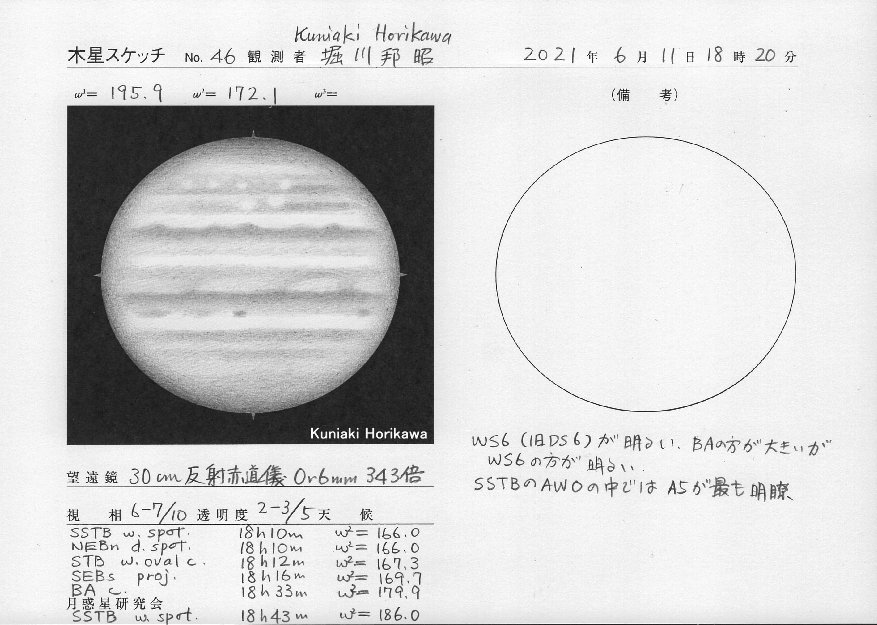 Kuniaki Horikawa
木星スケッチ No. 46 観測者 堀川邦昭 2021年 6月 11日 18時 20分
ω¹= 195.9 ω²= 172.1 ω³=
(備 考)
Kuniaki Horikawa
WS6 (旧DS6) が明るい、BAの方が大きいが
WS6の方が明るい.
SSTBのAWOの中では A5が最も明瞭
望遠鏡 30cm反射赤道儀 Or6mm 343倍
視 相 6-7/10 透明度 2-3/5 天 候
SSTB w. spot. 18h10m ω²= 166.0
NEBn d. spot. 18h10m ω²= 166.0
STB w. oval c. 18h12m ω²= 167.3
SEBs proj. 18h16m ω²= 169.7
BA c. 18h33m ω²= 179.9
月惑星研究会
SSTB w. spot. 18h43m ω²= 186.0